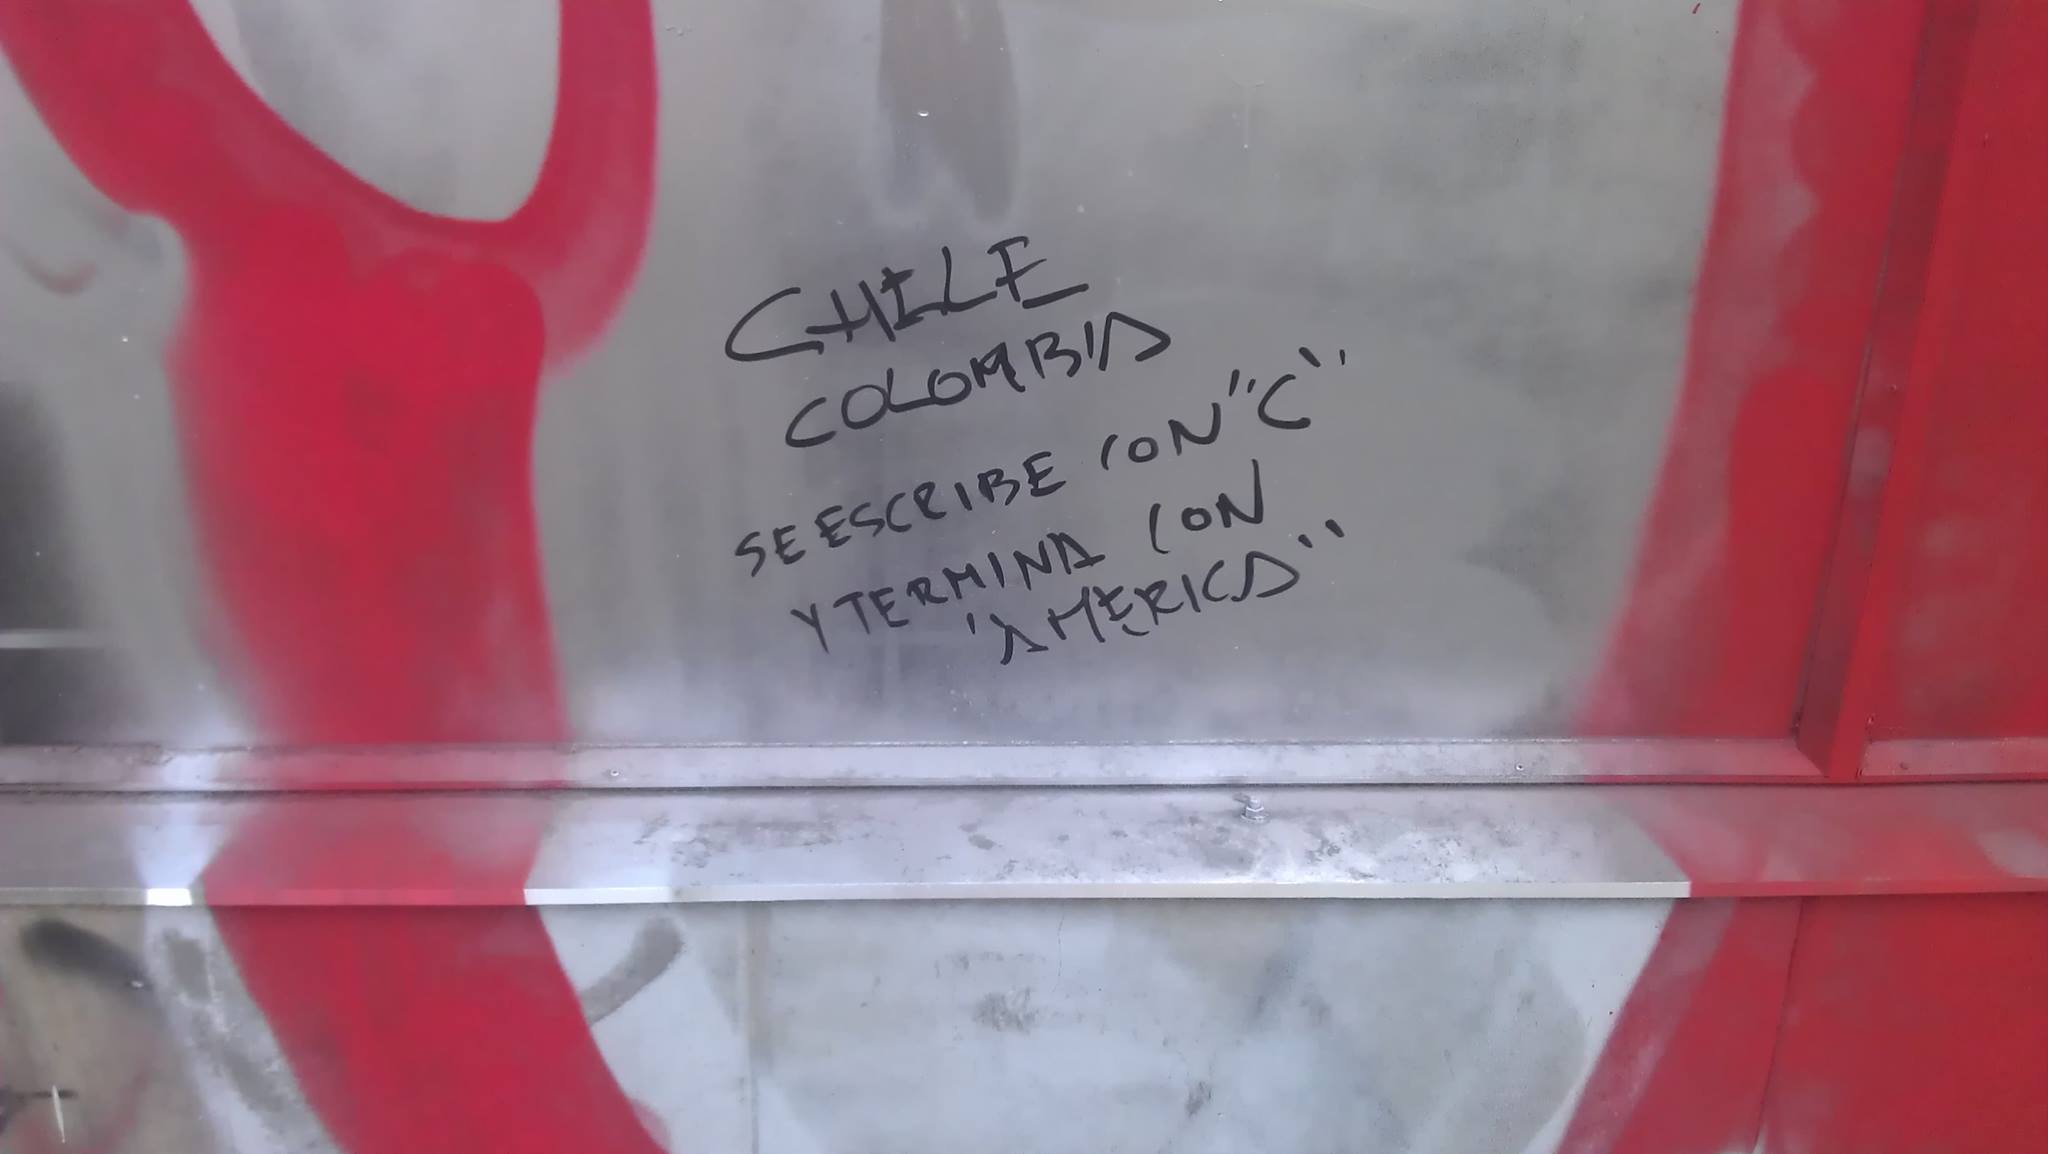 CHILE
COLOMBIA
SE ESCRIBE CON "C"
Y TERMINA CON
"AMERICA"